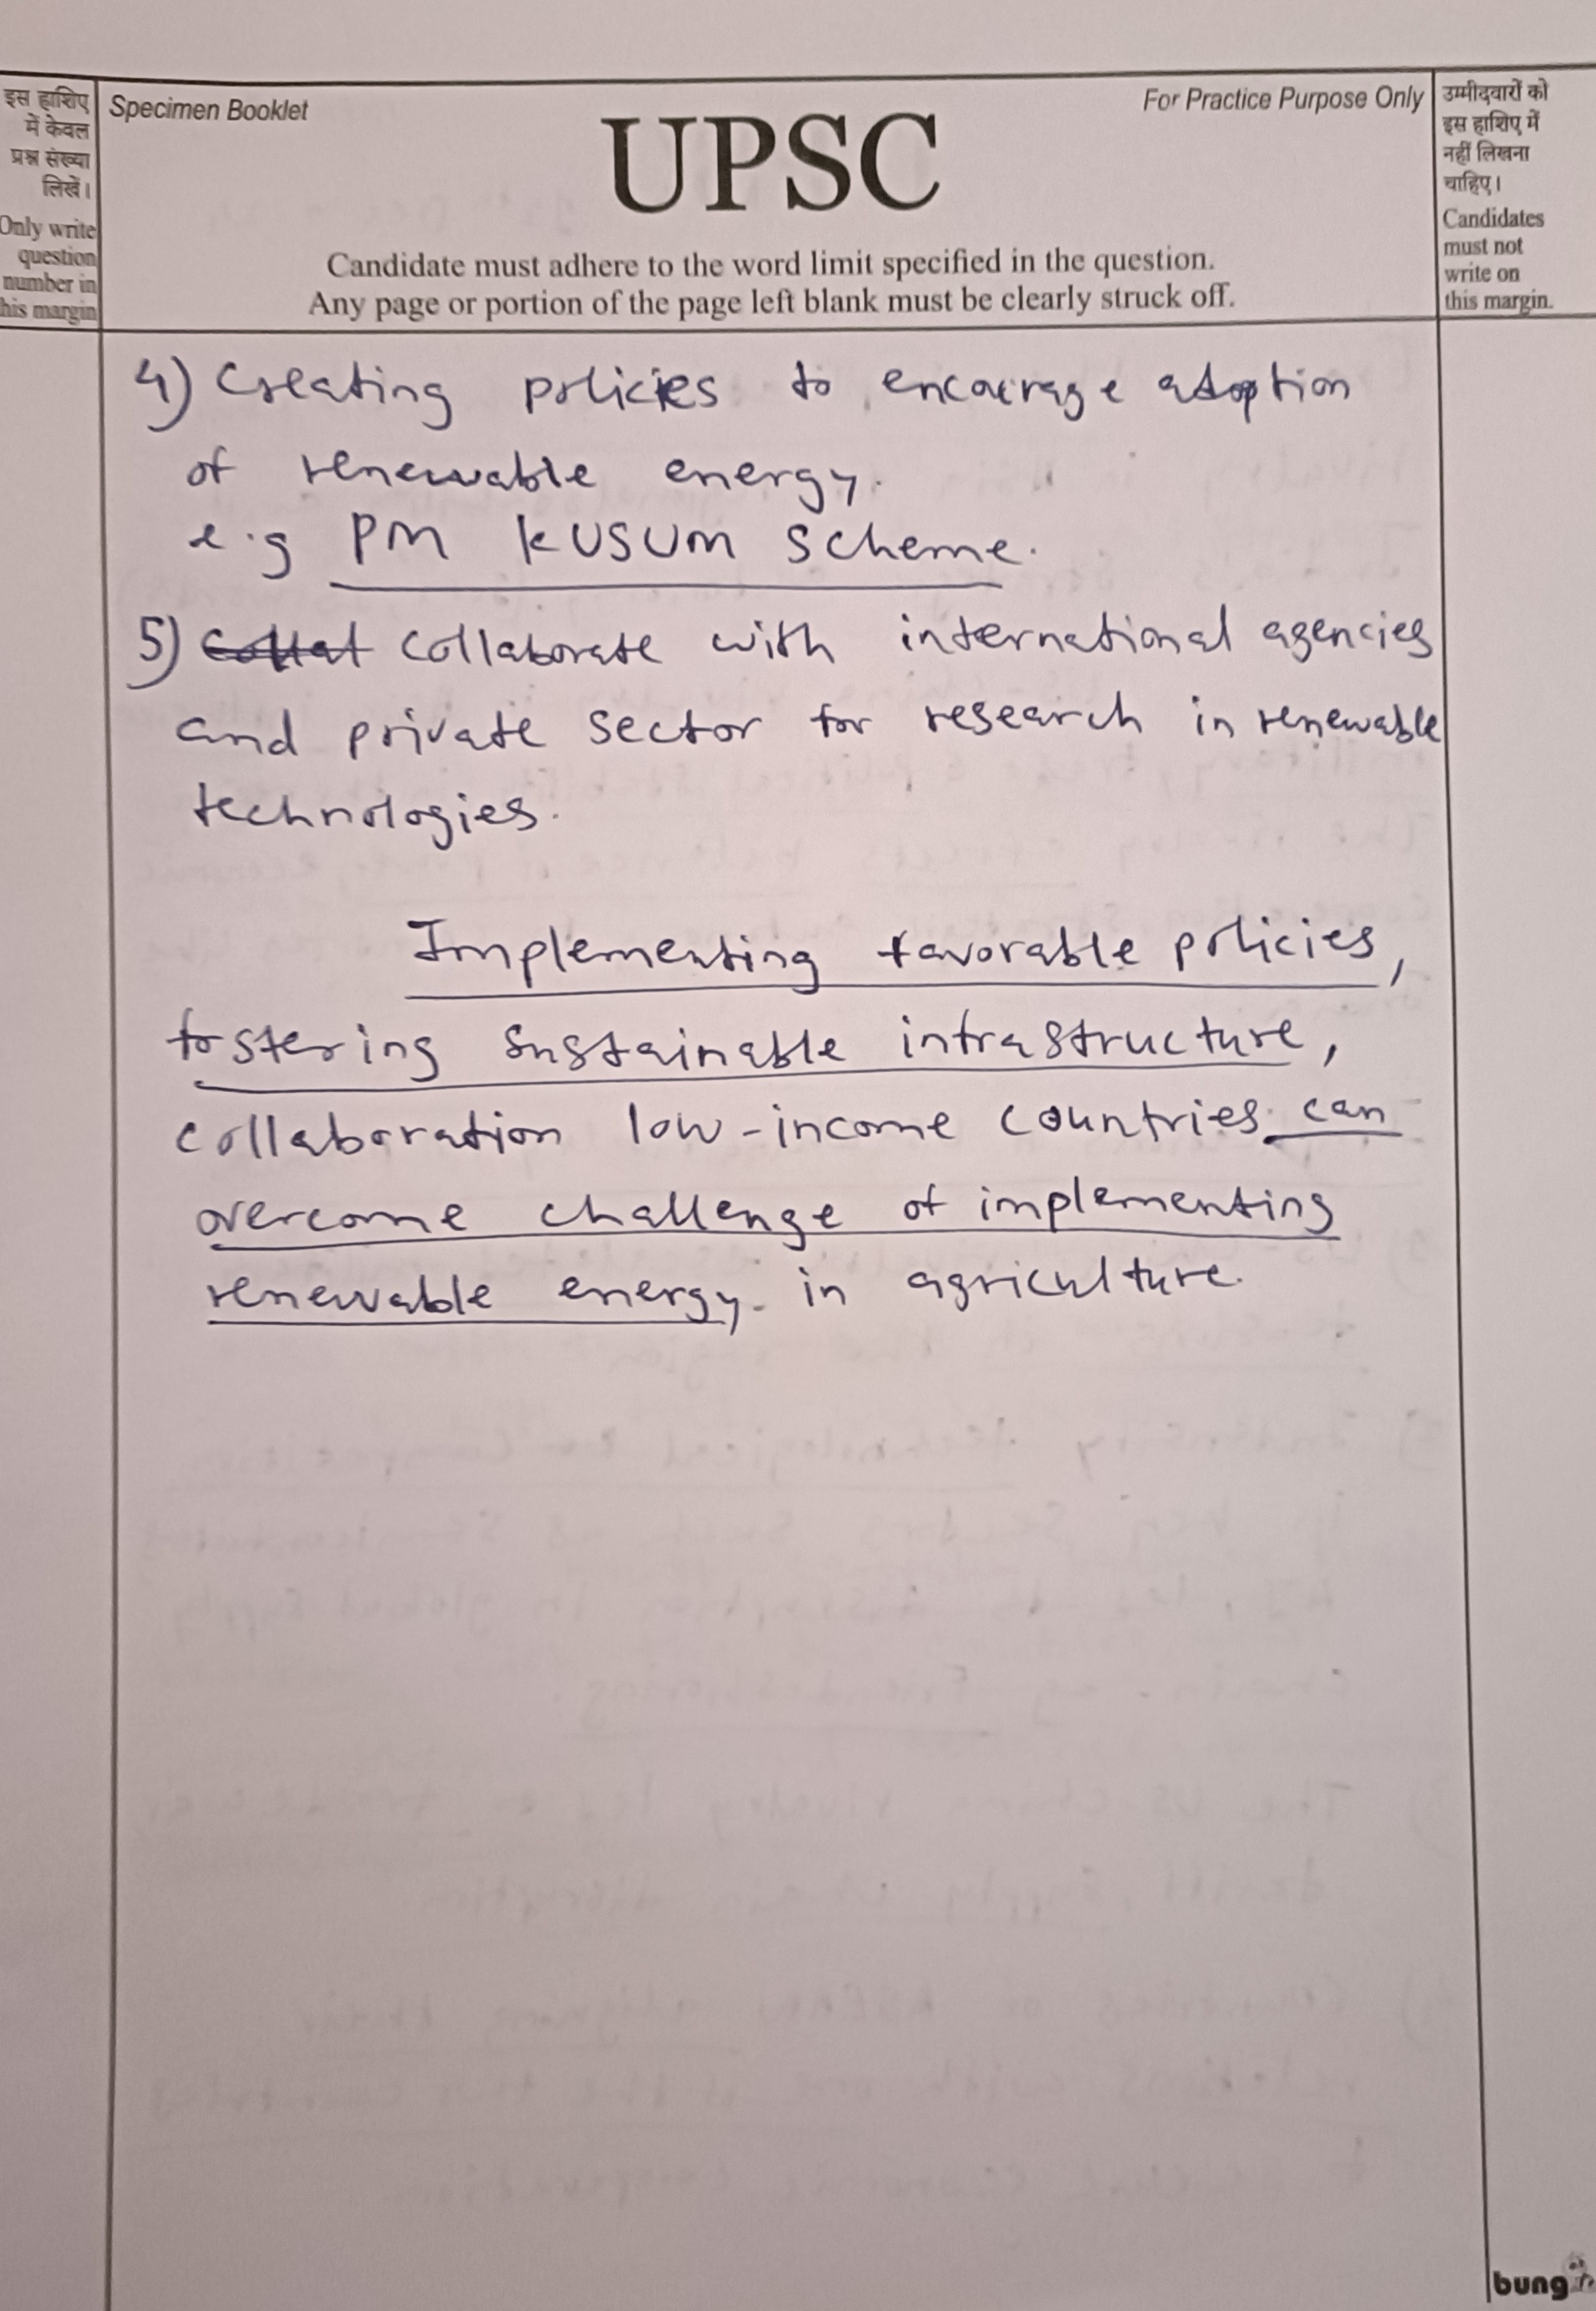 इस हाशिए
में केवल
प्रश्न संख्या
लिखें।
Only write
question
number in
his margin
Specimen Booklet
For Practice Purpose Only
UPSC
Candidate must adhere to the word limit specified in the question.
Any page or portion of the page left blank must be clearly struck off.
उम्मीदवारों को
इस हाशिए में
नहीं लिखना
चाहिए।
Candidates
must not
write on
this margin.
4) Creating policies to encourage adoption
of renewable energy.
e.g PM KUSUM scheme.
5) Collaborate with international agencies
and private sector for research in renewable
technologies.
Implementing favorable policies,
fostering sustainable infrastructure,
collaboration low-income countries can
overcome challenge of implementing
renewable energy. in agriculture.
bung